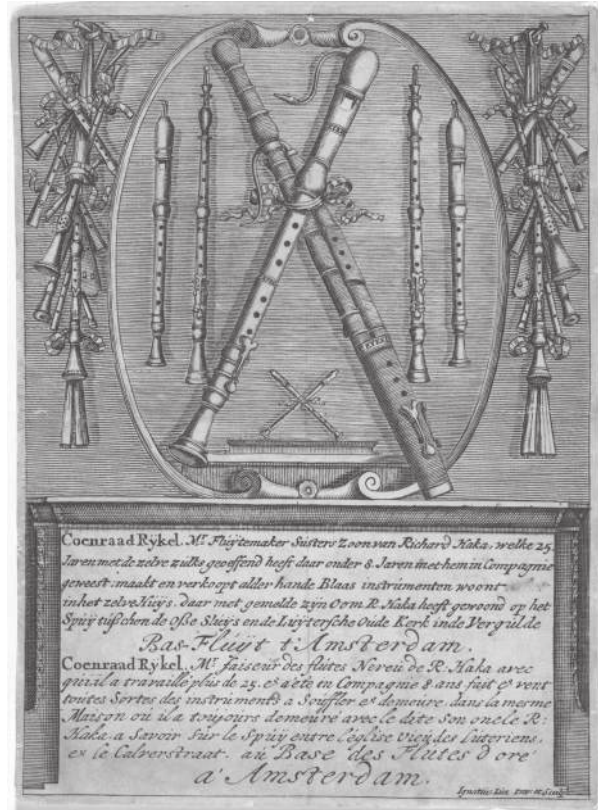 Coenraad Rÿkel. Mr. Fluÿtemaker Susters Zoon van Richard Haka, welke 25
Jaren met de zelve zulks geoeffend heeft daar onder 8 Jaren met hem in Compagnie
geweest; maakt en verkoopt alder hande Blaas instrumenten woont
in het zelve Huÿs, daar met gemelde zÿn Oom R. Haka heeft gewoond op het
Spuÿ tußchen de Oße Sluÿs en de Luÿtersche Oude Kerk in de Vergulde
Bas-Fluÿt t'Amsterdam.
Coenraad Rÿkel. Mr. faiseur des flutes Neveu de R. Haka avec
qui il a travaillé plus de 25. & a été en Compagnie 8 ans fait & vent
toutes Sortes des instruments a Souffler & demeure dans la mesme
Maison ou il a toujours demeuré avec le dite Son oncle R:
Haka a Savoir Sur le Spuÿ entre l'eglise vieÿ des luteriens,
ex le Calverstraat. au Base des Flutes d'oré
a Amsterdam.
Ignatius Lux inv. et Sculp.